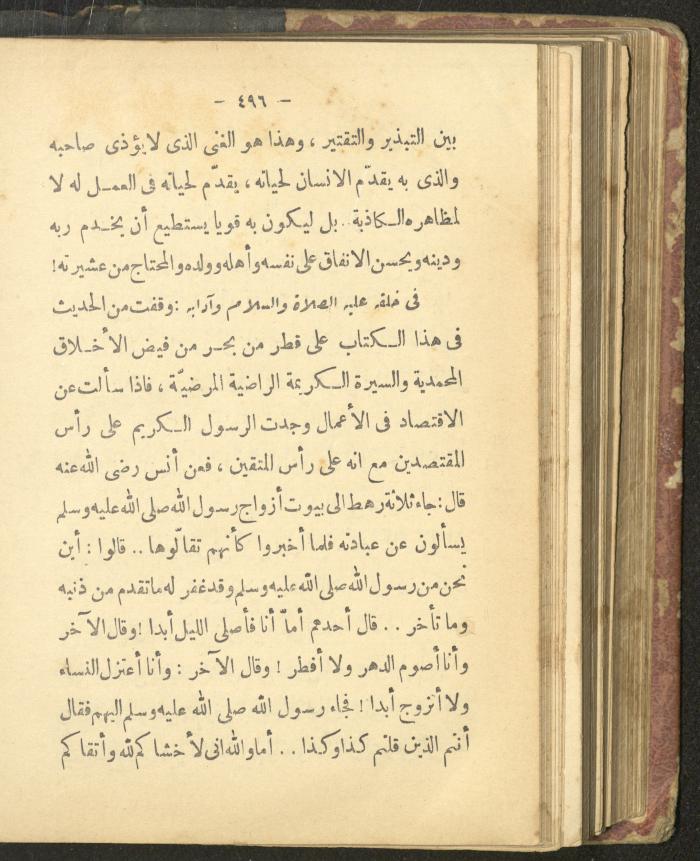 - ٤٩٦ -
بين التبذير والتقتير ، وهذا هو الغنى الذى لا يؤذى صاحبه
والذى به يقدّم الانسان لحياته ، يقدّم لحياته فى العمـل له لا
لمظاهره الـكاذبة .. بل ليـكون به قويا يستطيع أن يخـدم ربه
ودينه ويحسن الانفاق على نفسه وأهله وولده والمحتاج من عشيرته !
فى خلقه عليه الصلاة والسلام وآدابه : وقفت من الحديث
فى هذا الـكتاب على قطر من بحـر من فيض الأخـلاق
المحمدية والسيرة الـكريمة الراضية المرضيّة ، فاذا سألت عن
الاقتصاد فى الأعمال وجدت الرسول الـكريم على رأس
المقتصدين مع انه على رأس المتقين ، فعن أنس رضى الله عنه
قال : جاء ثلاثة رهط الى بيوت أزواج رسول الله صلى الله عليه وسلم
يسألون عن عبادته فلما أخبروا كأنهم تقالّوها .. قالوا : أين
نحن من رسول الله صلى الله عليه وسلم وقد غفر له ما تقدم من ذنبه
وما تأخر .. قال أحدهم أماّ أنا فأصلى الليل أبدا ! وقال الآخر
وأنا أصوم الدهر ولا أفطر ! وقال الآخر : وأنا أعتزل النساء
ولا أتزوج أبدا ! فجاء رسول الله صلى الله عليه وسلم اليهم فقال
أنتم الذين قلتم كذا وكذا .. أما والله انى لأخشاكم لله وأتقاكم